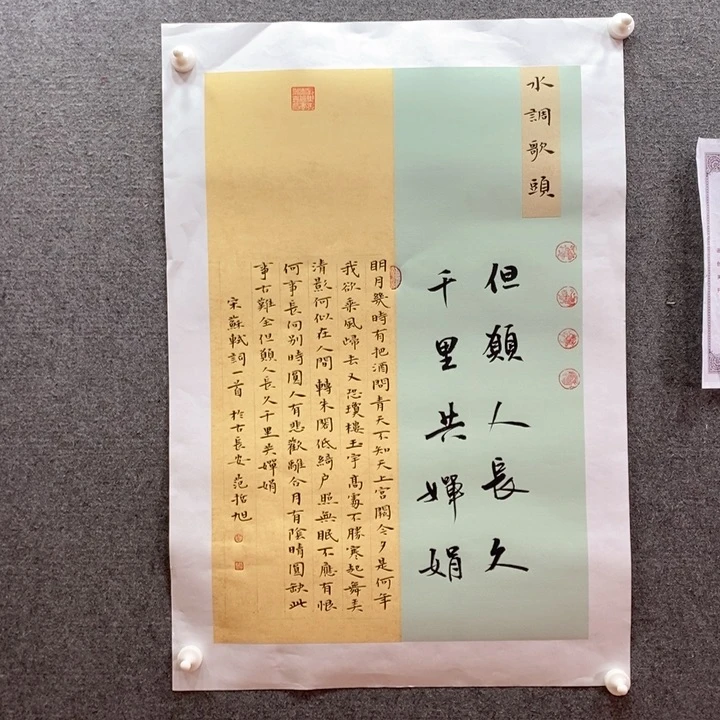 水調歌頭
但願人長久
千里共嬋娟
明月幾時有把酒問青天不知天上宮闕今夕是何年
我欲乘風歸去又恐瓊樓玉宇高處不勝寒起舞弄
清影何似在人間轉朱閣低綺户照無眠不應有恨
何事長向别時圓人有悲歡離合月有陰晴圓缺此
事古難全但願人長久千里共嬋娟
宋蘇軾詞一首 於古長安 范哲旭